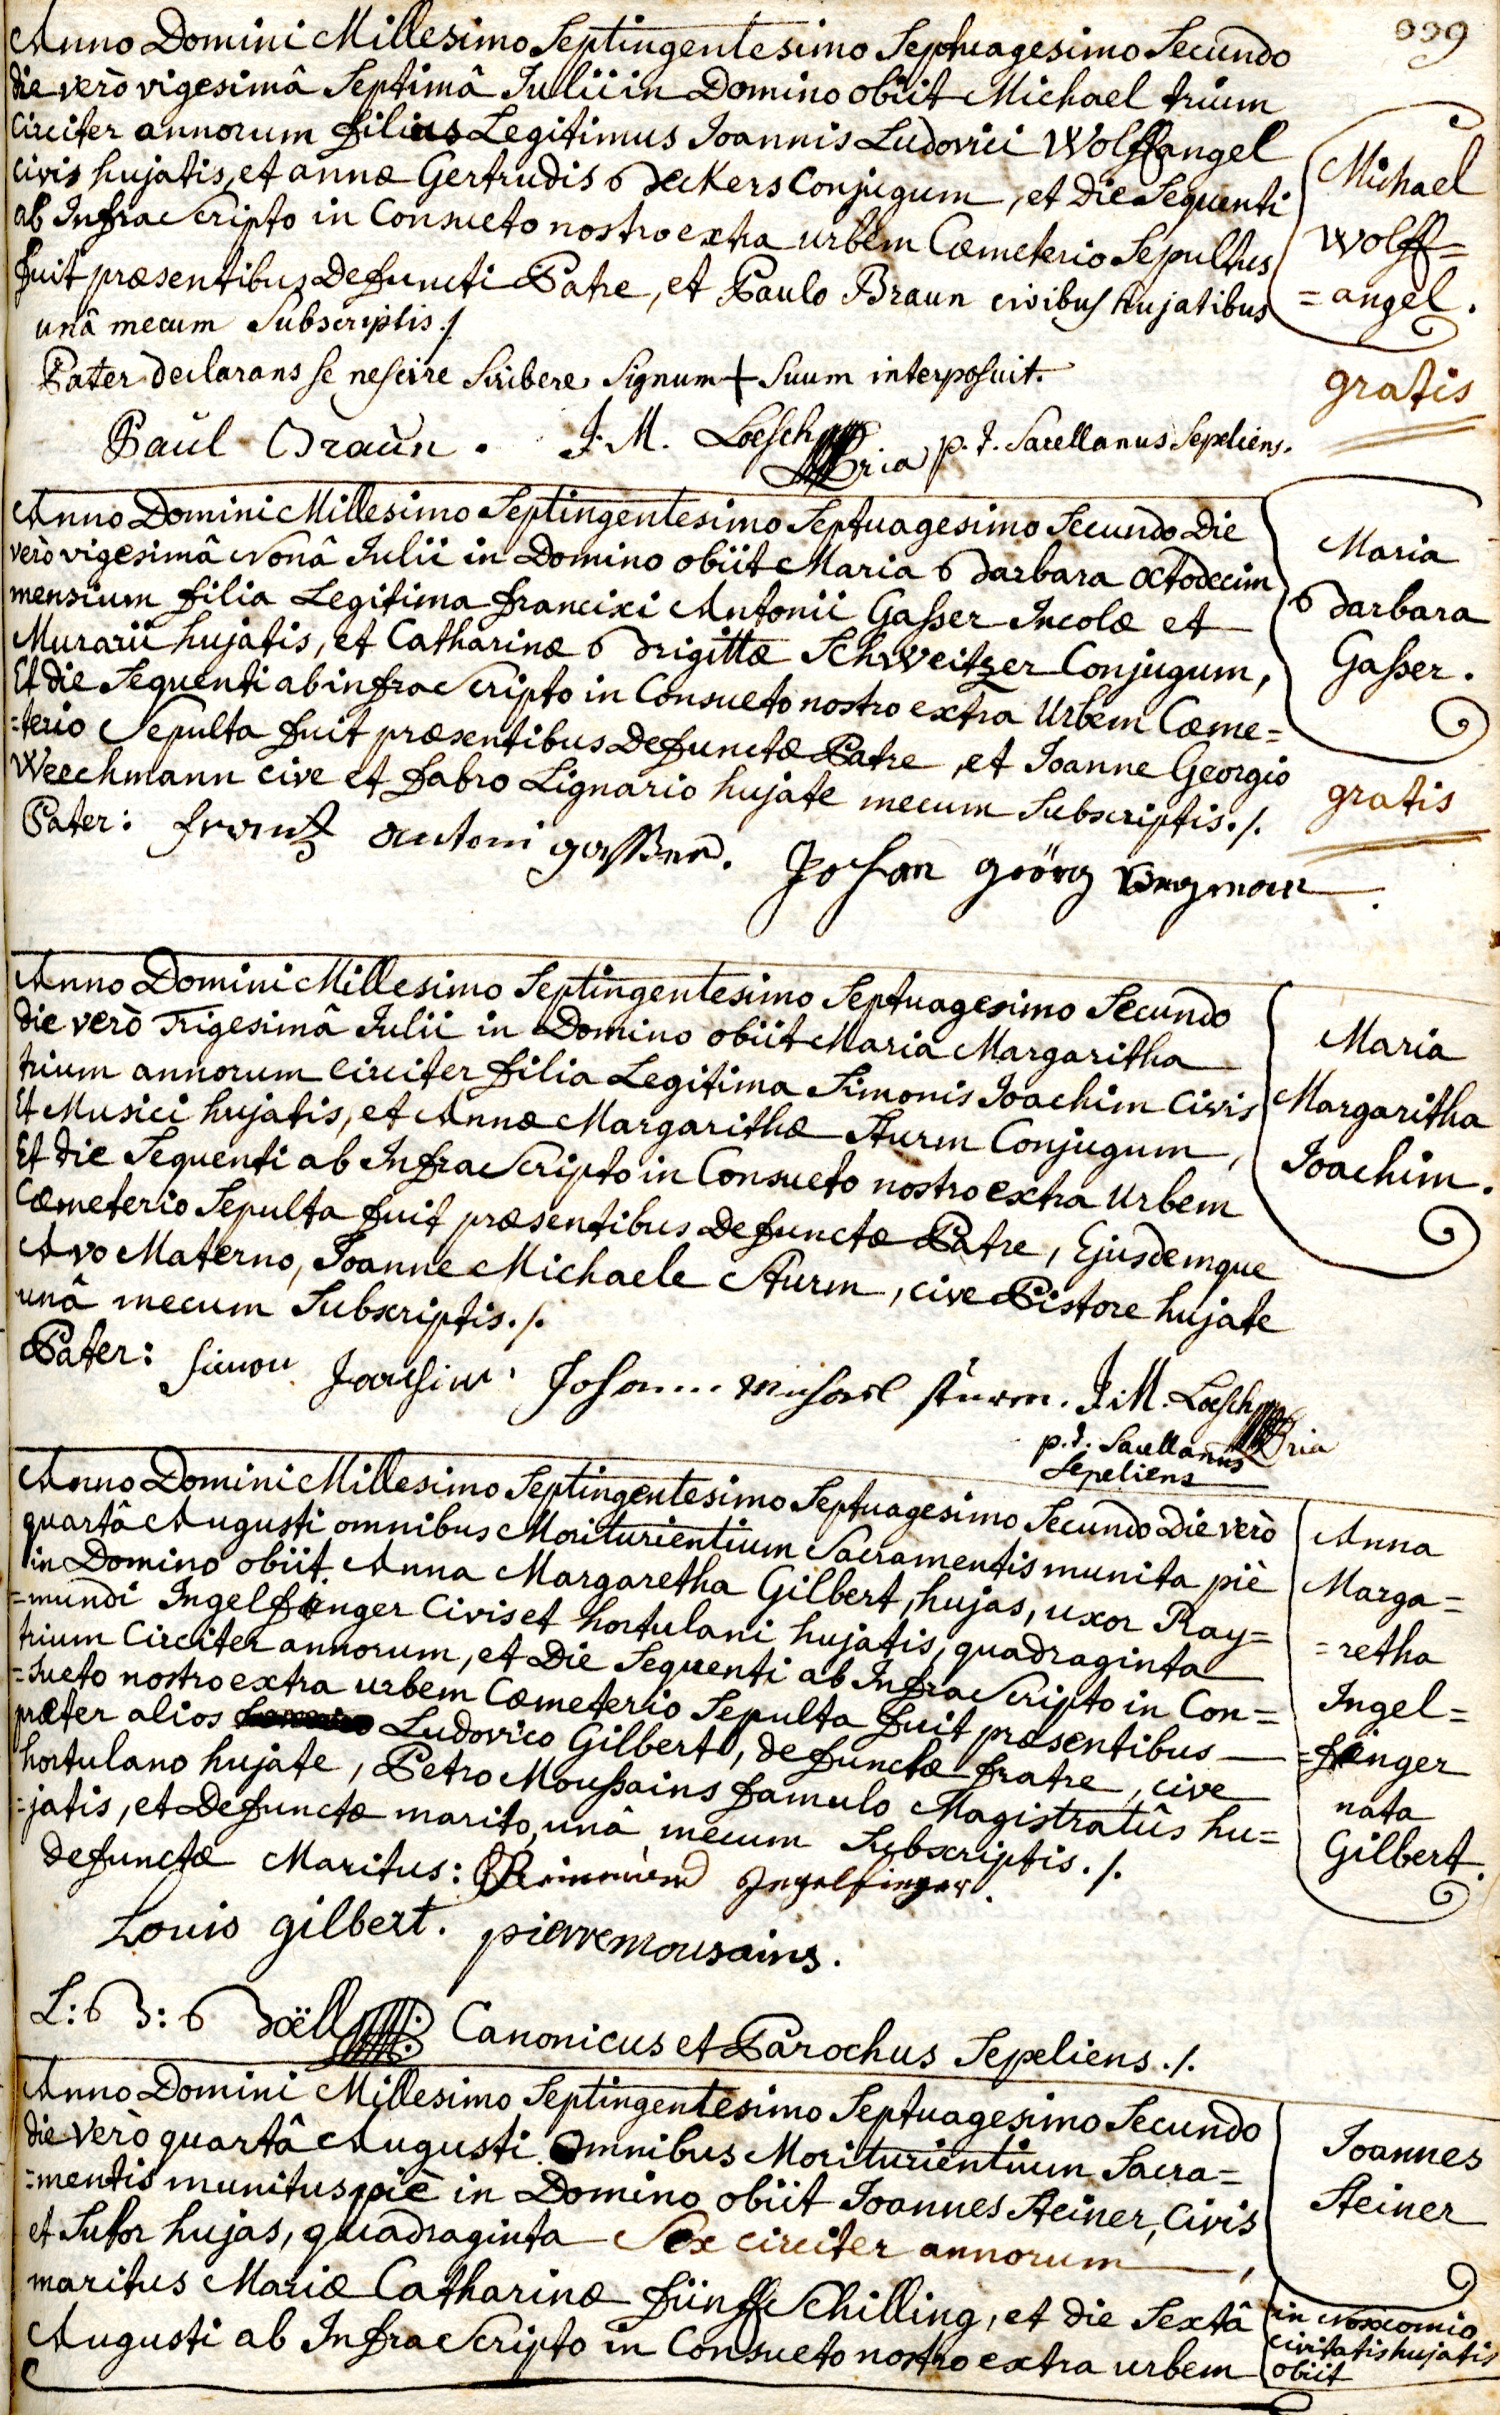 999
Anno Domini Millesimo Septingentesimo Septuagesimo Secundo
die verò vigesimâ Septimâ Julii in Domino obiit Michael trium
circiter annorum filius Legitimus Joannis Ludovici Wolffangel
civis hujatis, et annæ Gertrudis Beckers Conjugum, et die Sequenti
ab Infra Scripto in Consueto nostro extra urbem Cæmeterio Sepultus
fuit præsentibus Defuncti Patre, et Paulo Braun civibus hujatibus
unâ mecum Subscriptis ./.
Michael
Wolff=
=angel.
gratis
Pater declarans se nescire scribere signum + suum interposuit.
Paul Braun. J. M. Loesch p. t. Sacellanus Sepeliens.
Anno Domini Millesimo Septingentesimo Septuagesimo Secundo Die
verò vigesimâ Nonâ Julii in Domino obiit Maria Barbara octodecim
mensium filia Legitima francisci Antonii Gasser Incolæ et
Murarii hujatis, et Catharinæ Brigittæ Schweitzer Conjugum,
Et die Sequenti ab infra Scripto in Consueto nostro extra Urbem Cœme=
=terio Sepulta fuit præsentibus Defunctæ Patre, et Joanne Georgio
Weechmann cive et fabro Lignario hujate mecum Subscriptis ./.
Maria
Barbara
Gasser.
gratis
Pater: frantz antoni gasser. Johan görg
Anno Domini Millesimo Septingentesimo Septuagesimo Secundo
die verò Trigesimâ Julii in Domino obiit Maria Margaritha
trium annorum circiter filia Legitima Simonis Joachim Civis
Et Musici hujatis, et Annæ Margarithæ Sturm Conjugum,
Et die Sequenti ab Infra Scripto in Consueto nostro extra Urbem
Cœmeterio Sepulta fuit præsentibus Defunctæ Patre, Ejusdemque
Avo Materno, Joanne Michaele Sturm, cive Pistore hujate
unâ mecum Subscriptis ./.
Maria
Margaritha
Joachim.
Pater: simon Joachim. Johann michael sturm. J. M. Loesch
p. t. Sacellanus
Sepeliens
Anno Domini Millesimo Septingentesimo Septuagesimo Secundo Die verò
quartâ Augusti omnibus Moriturientium Sacramentis munita piè
in Domino obiit Anna Margaretha Gilbert, hujas, uxor Ray=
=mundi Ingelfinger Civis et hortulani hujatis, quadraginta
trium Circiter annorum, et Die Sequenti ab Infra Scripto in Con=
=sueto nostro extra urbem Cœmeterio Sepulta fuit præsentibus
præter alios Ludovico Gilbert, defunctæ fratre, cive
hortulano hujate, Petro Moussains famulo Magistratûs hu=
=jatis, et Defunctæ marito, unâ mecum Subscriptis ./.
Anna
Marga=
=retha
Ingel=
=finger
nata
Gilbert.
defunctæ Maritus: Reimund Ingelfinger.
Louis gilbert. pierre mousains.
L: B: Boëll Canonicus et Parochus Sepeliens ./.
Anno Domini Millesimo Septingentesimo Septuagesimo Secundo
die verò quartâ Augusti Omnibus Moriturientium Sacra=
=mentis munitus piè in Domino obiit Joannes Steiner, Civis
et Sutor hujas, quadraginta Sex circiter annorum,
maritus Mariæ Catharinæ fünff Schilling, et die Sextâ
Augusti ab Infra Scripto in Consueto nostro extra urbem
Joannes
Steiner
in Noxocomio
civitatis hujatis
obiit